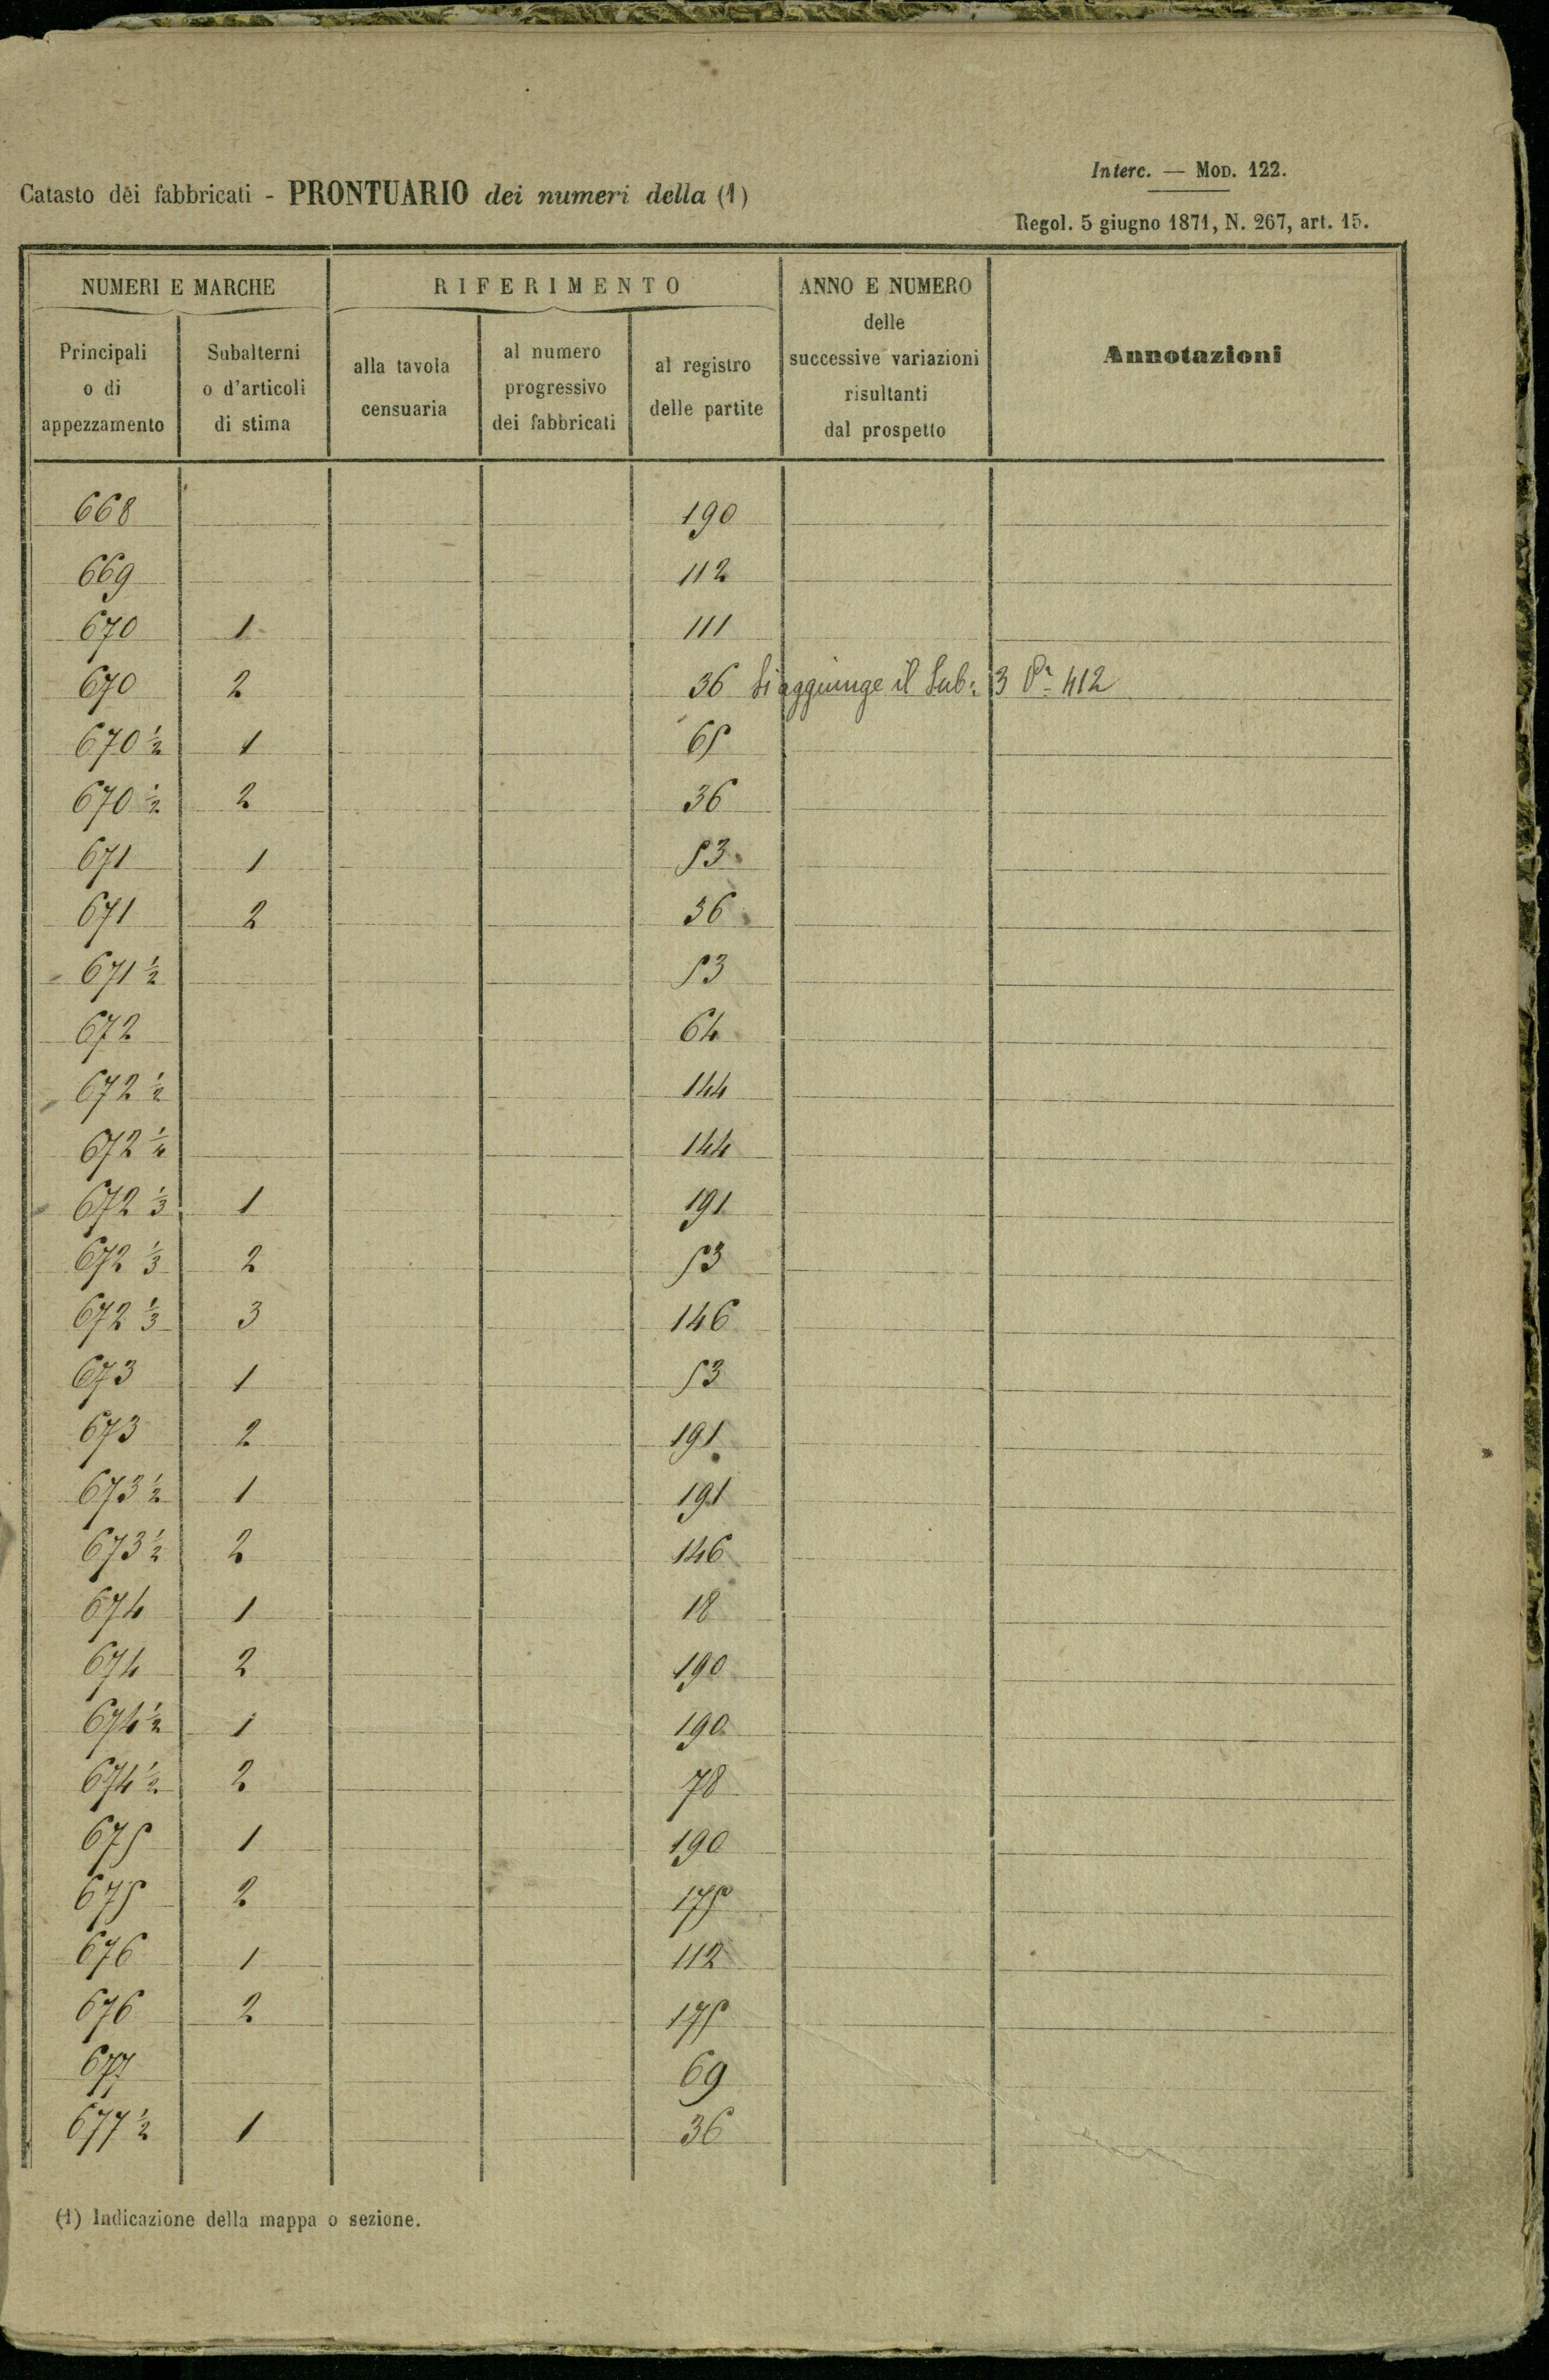 Interc. — Mod. 122.
Catasto dei fabbricati - PRONTUARIO dei numeri della (1)
Regol. 5 giugno 1871, N. 267, art. 15.
NUMERI E MARCHE
RIFERIMENTO
ANNO E NUMERO
delle
successive variazioni
risultanti
dal prospetto
Annotazioni
Principali
o di
appezzamento
Subalterni
o d'articoli
di stima
alla tavola
censuaria
al numero
progressivo
dei fabbricati
al registro
delle partite
668 190
669 112
670 1 111
670 2 36 Si aggiunge il Sub: 3 Pa 412
670 1/2 1 65
670 1/2 2 36
671 1 53
671 2 36
671 1/2 53
672 64
672 1/2 144
672 1/4 144
672 1/3 1 191
672 1/3 2 53
672 1/3 3 146
673 1 53
673 2 191
673 1/2 1 191
673 1/2 2 146
674 1 18
674 2 190
674 1/2 1 190
674 1/2 2 78
675 1 190
675 2 175
676 1 112
676 2 175
677 69
677 1/2 1 36
(1) Indicazione della mappa o sezione.